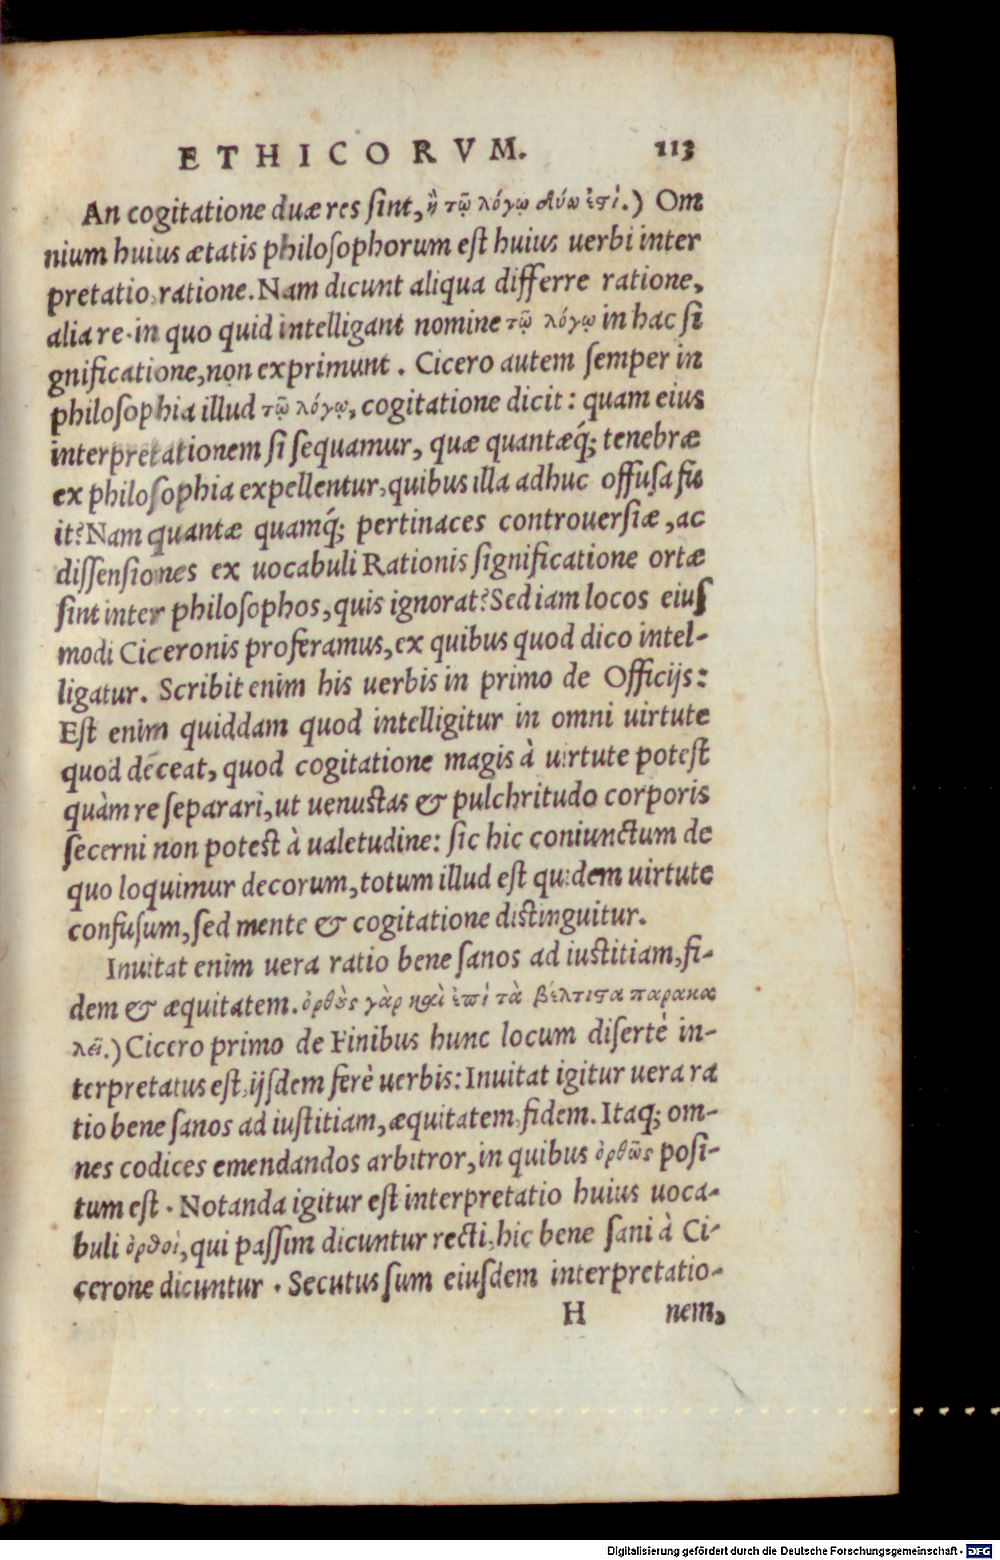 ETHICORVM. 113
An cogitatione duæ res sint, ἢ τῷ λόγῳ δύω ἐστί.) Om
nium huius ætatis philosophorum est huius uerbi inter
pretatio, ratione. Nam dicunt aliqua differre ratione,
alia re. in quo quid intelligant nomine τῷ λόγῳ in hac si
gnificatione, non exprimunt. Cicero autem semper in
philosophia illud τῷ λόγῳ, cogitatione dicit: quam eius
interpretationem si sequamur, quæ quantæq́; tenebræ
ex philosophia expellentur, quibus illa adhuc offusa fu
it? Nam quantæ quamq́; pertinaces controuersiæ, ac
dissensiones ex uocabuli Rationis significatione ortæ
sint inter philosophos, quis ignorat? Sed iam locos eius
modi Ciceronis proferamus, ex quibus quod dico intel-
ligatur. Scribit enim his uerbis in primo de Officijs:
Est enim quiddam quod intelligitur in omni uirtute
quod déceat, quod cogitatione magis à uirtute potest
quàm re separari, ut uenustas & pulchritudo corporis
secerni non potest à ualetudine: sic hic coniunctum de
quo loquimur decorum, totum illud est quidem uirtute
confusum, sed mente & cogitatione distinguitur.
Inuitat enim uera ratio bene sanos ad iustitiam, fi-
dem & æquitatem. ὀρθῶς γὰρ καὶ ἐπὶ τὰ βέλτιστα παρακα
λεῖ.) Cicero primo de Finibus hunc locum disertè in-
terpretatus est, ijsdem ferè uerbis: Inuitat igitur uera ra
tio bene sanos ad iustitiam, æquitatem, fidem. Itaq; om-
nes codices emendandos arbitror, in quibus ὀρθῶς posi-
tum est. Notanda igitur est interpretatio huius uoca-
buli ὀρθοὶ, qui passim dicuntur recti, hic bene sani à Ci-
cerone dicuntur. Secutus sum eiusdem interpretatio-
H nem,
Digitalisierung gefördert durch die Deutsche Forschungsgemeinschaft - DFG